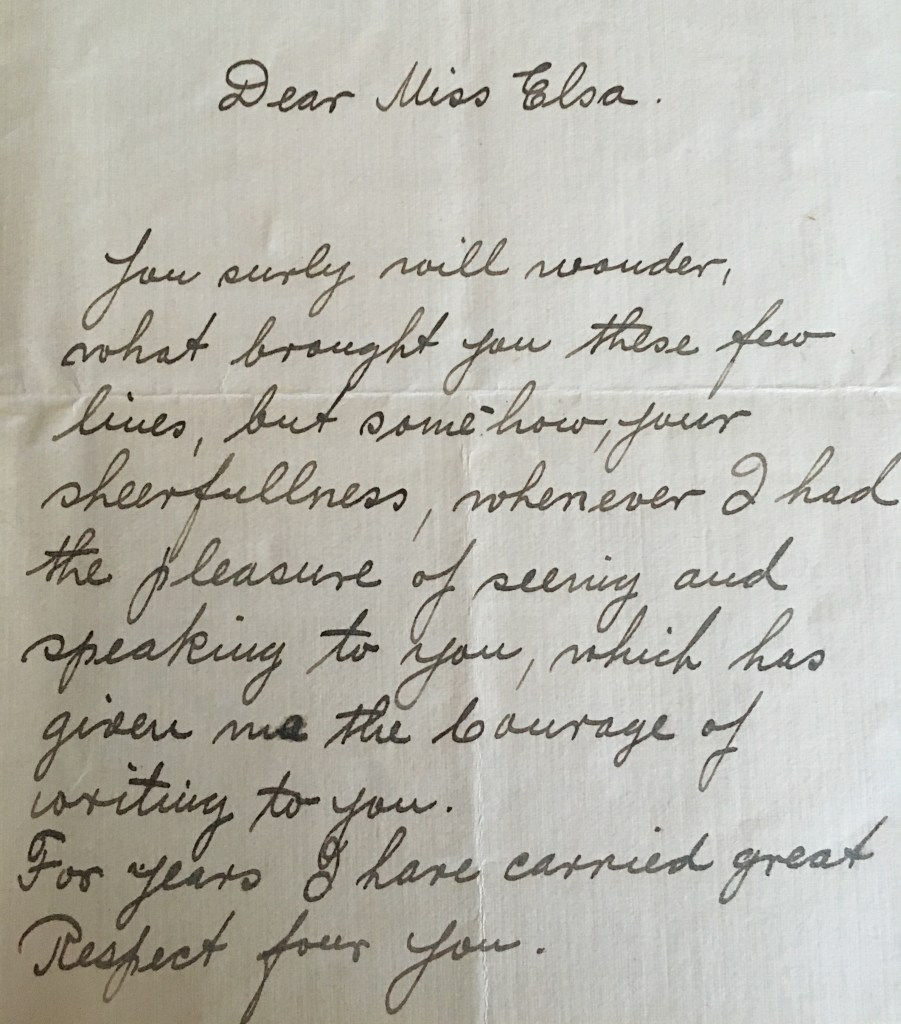 Dear Miss Elsa.
You surly will wonder,
what brought you these few
lines, but some-how, your
sheerfullness, whenever I had
the pleasure of seenig and
speaking to you, which has
given me the Courage of
writing to you.
For years I have carried great
Respect four you.